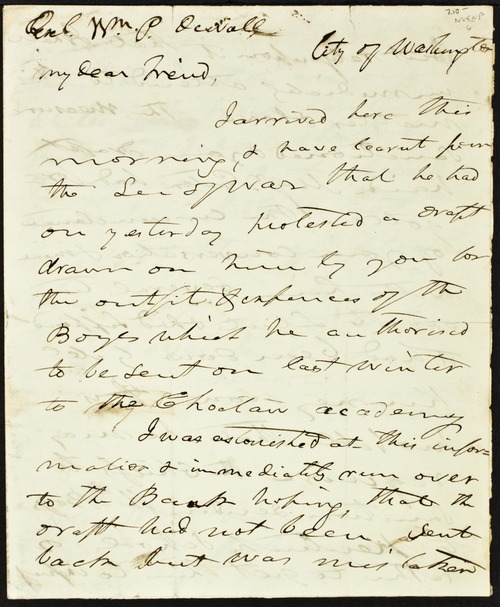 Genl. Wm. P. Duvall
City of Washington
my dear Friend,
I arrived here this
morning, & have learnt from
the Sec of War that he had
on yesterday protested a draft
drawn on him by you for
the outfit & expences of the
Boyes which he authorised
to be sent on last winter
to the Choctaw academy
I was astonished at this infor-
mation & immediately run over
to the Bank hoping, that the
draft had not been sent
back but was mistaken